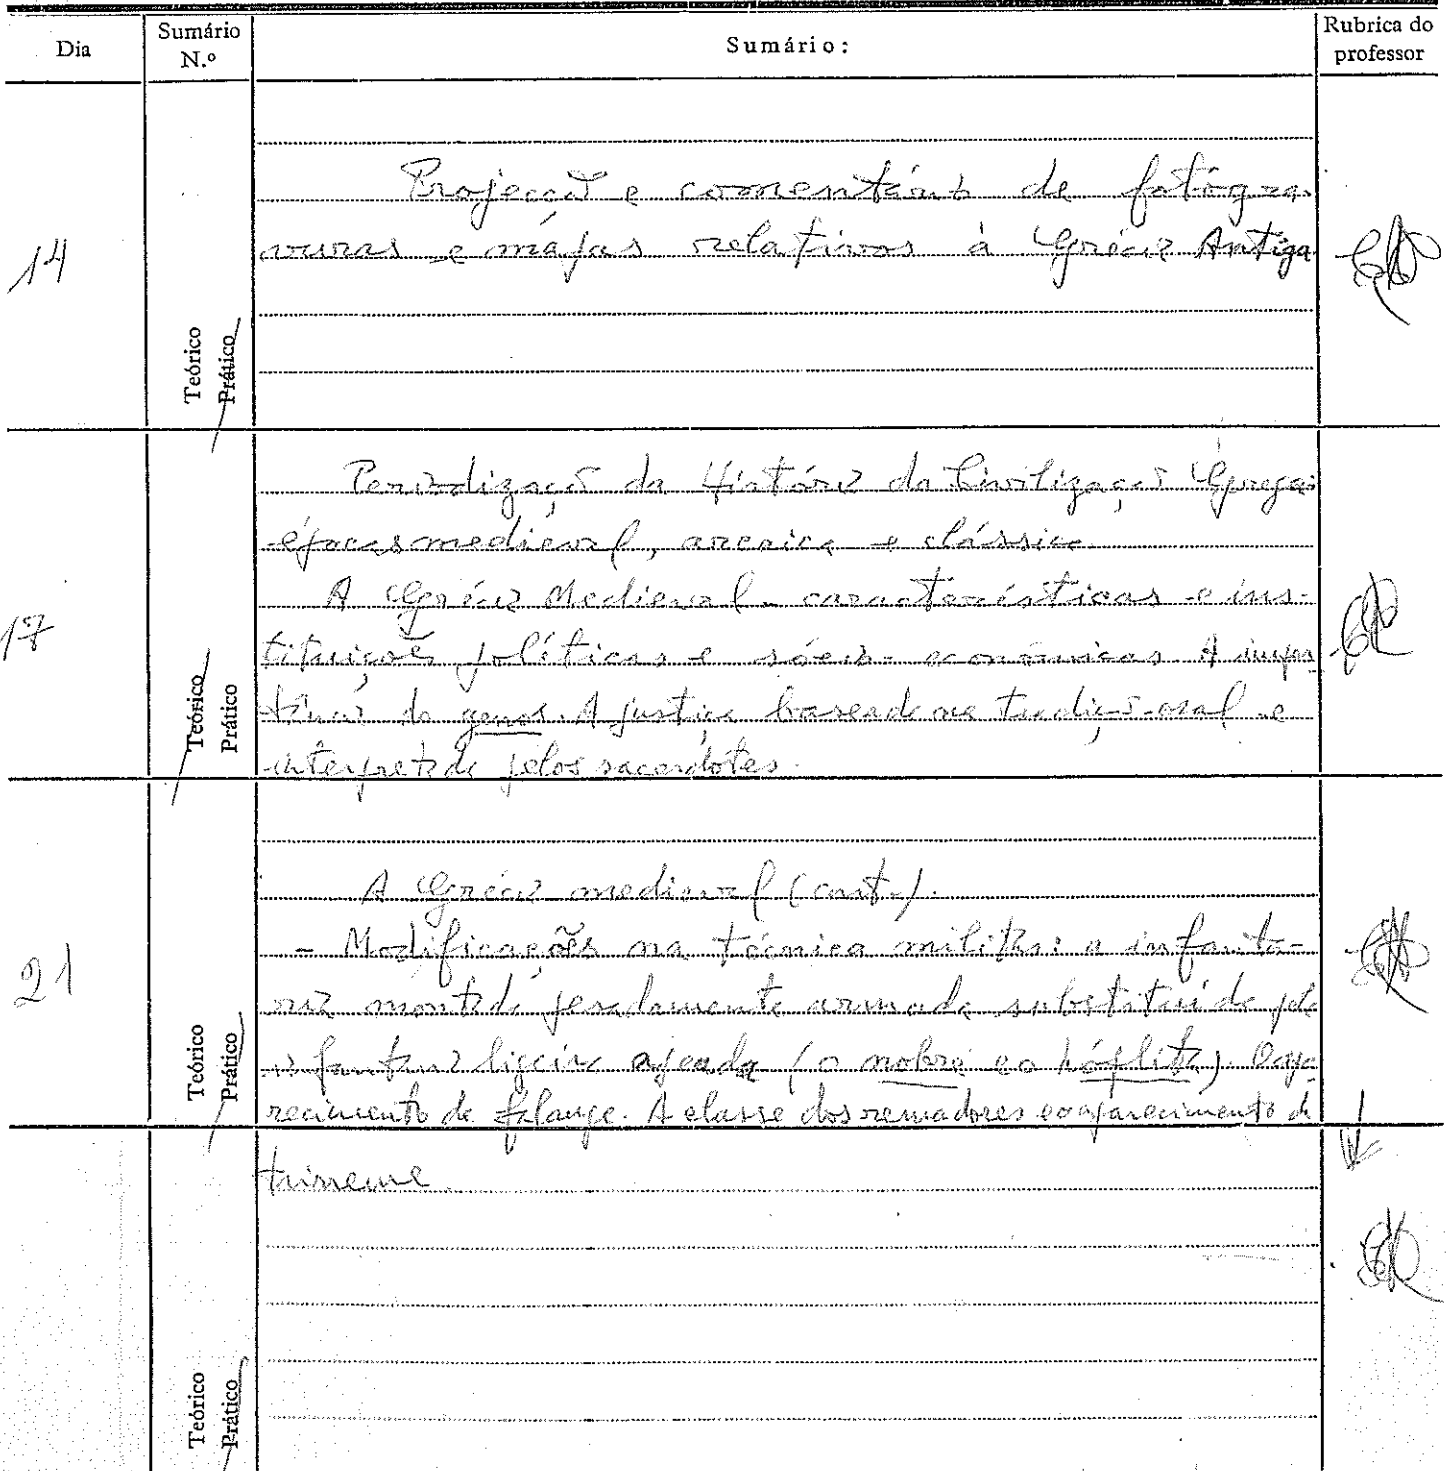 Dia
Sumário N.º
Sumário:
Rubrica do professor
14
Teórico
Prático
Projecção e comentário de fotogra-
vuras e mapas relativos à Grécia Antiga
17
Teórico
Prático
Periodização da História da Civilização Grega:
épocas medieval, arcaica e clássica.
A Grécia Medieval - características e ins-
tituições políticas e sócio-económicas. A impor-
tância do genos. A justiça baseada na tradição oral e
interpretada pelos sacerdotes.
21
Teórico
Prático
A Grécia medieval (cont.).
- Modificações na técnica militar: a infanta-
ria montada pesadamente armada substituída pela
infantaria ligeira apeada (o nobre e o hóplita). O apa-
recimento da falange. A classe dos remadores e o aparecimento da
trirreme.
Teórico
Prático